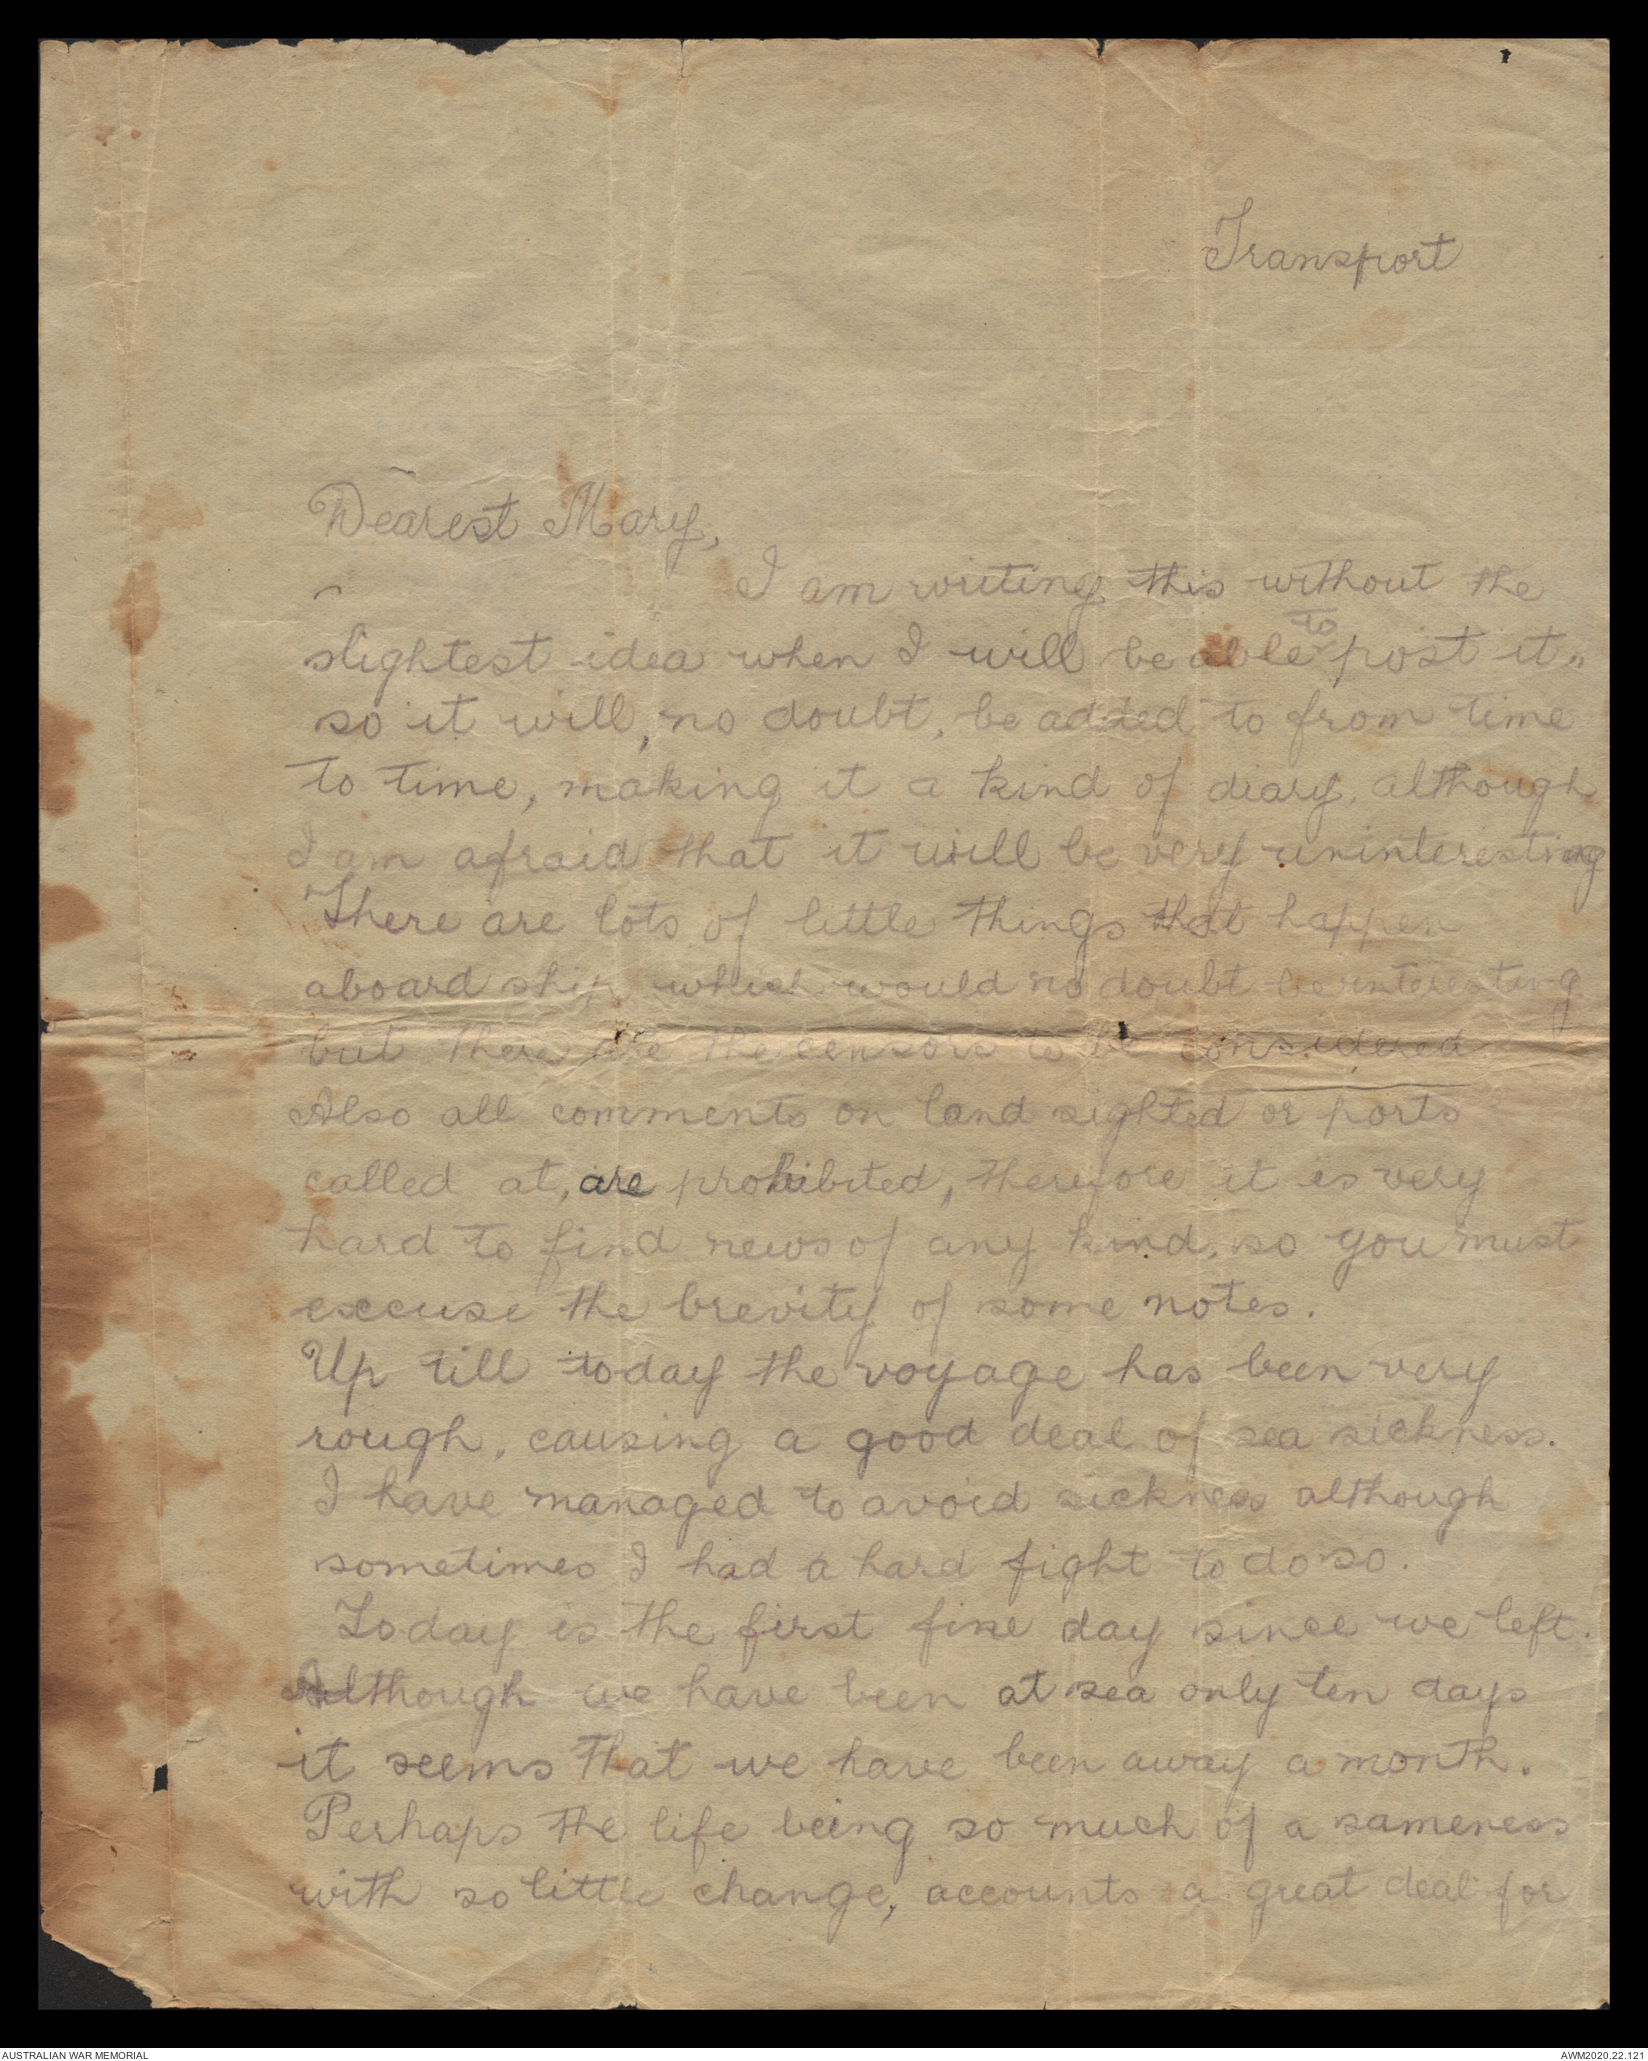 Transport
Dearest Mary,
I am writing this without the
slightest idea when I will be able to post it,,
so it will, no doubt, be added to from time
to time, making it a kind of diary, although
I am afraid that it will be very uninteresting
There are lots of little things that happen
aboard ship which would no doubt be interesting
but there are the censors to be considered
Also all comments on land sighted or ports
called at, are prohibited, therefore it is very
hard to find news of any kind, so you must
excuse the brevity of some notes.
Up till today the voyage has been very
rough, causing a good deal of sea sickness.
I have managed to avoid sickness although
sometimes I had a hard fight to do so.
Today is the first fine day since we left.
Although we have been at sea only ten days
it seems that we have been away a month.
Perhaps the life being so much of a sameness
with so little change, accounts a great deal for
AUSTRALIAN WAR MEMORIAL
AWM2020.22.121